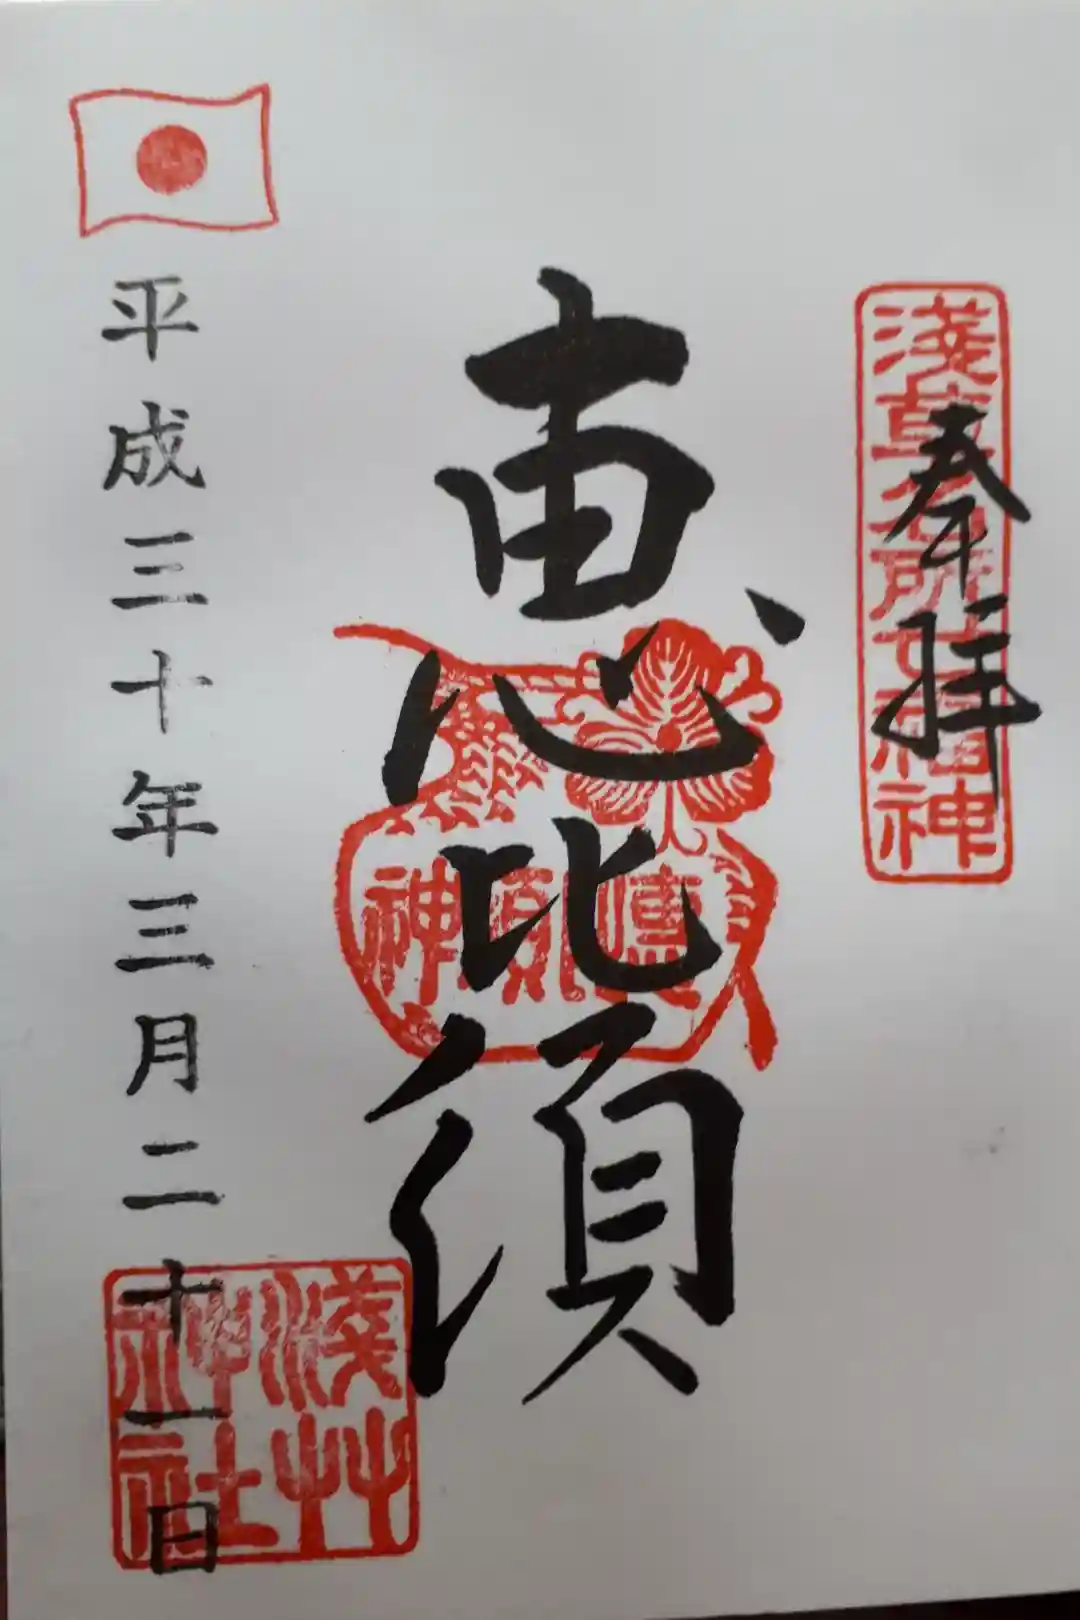 奉拝
淺草名所七福神
恵比須
恵比須神
平成三十年三月二十一日
淺草
神社